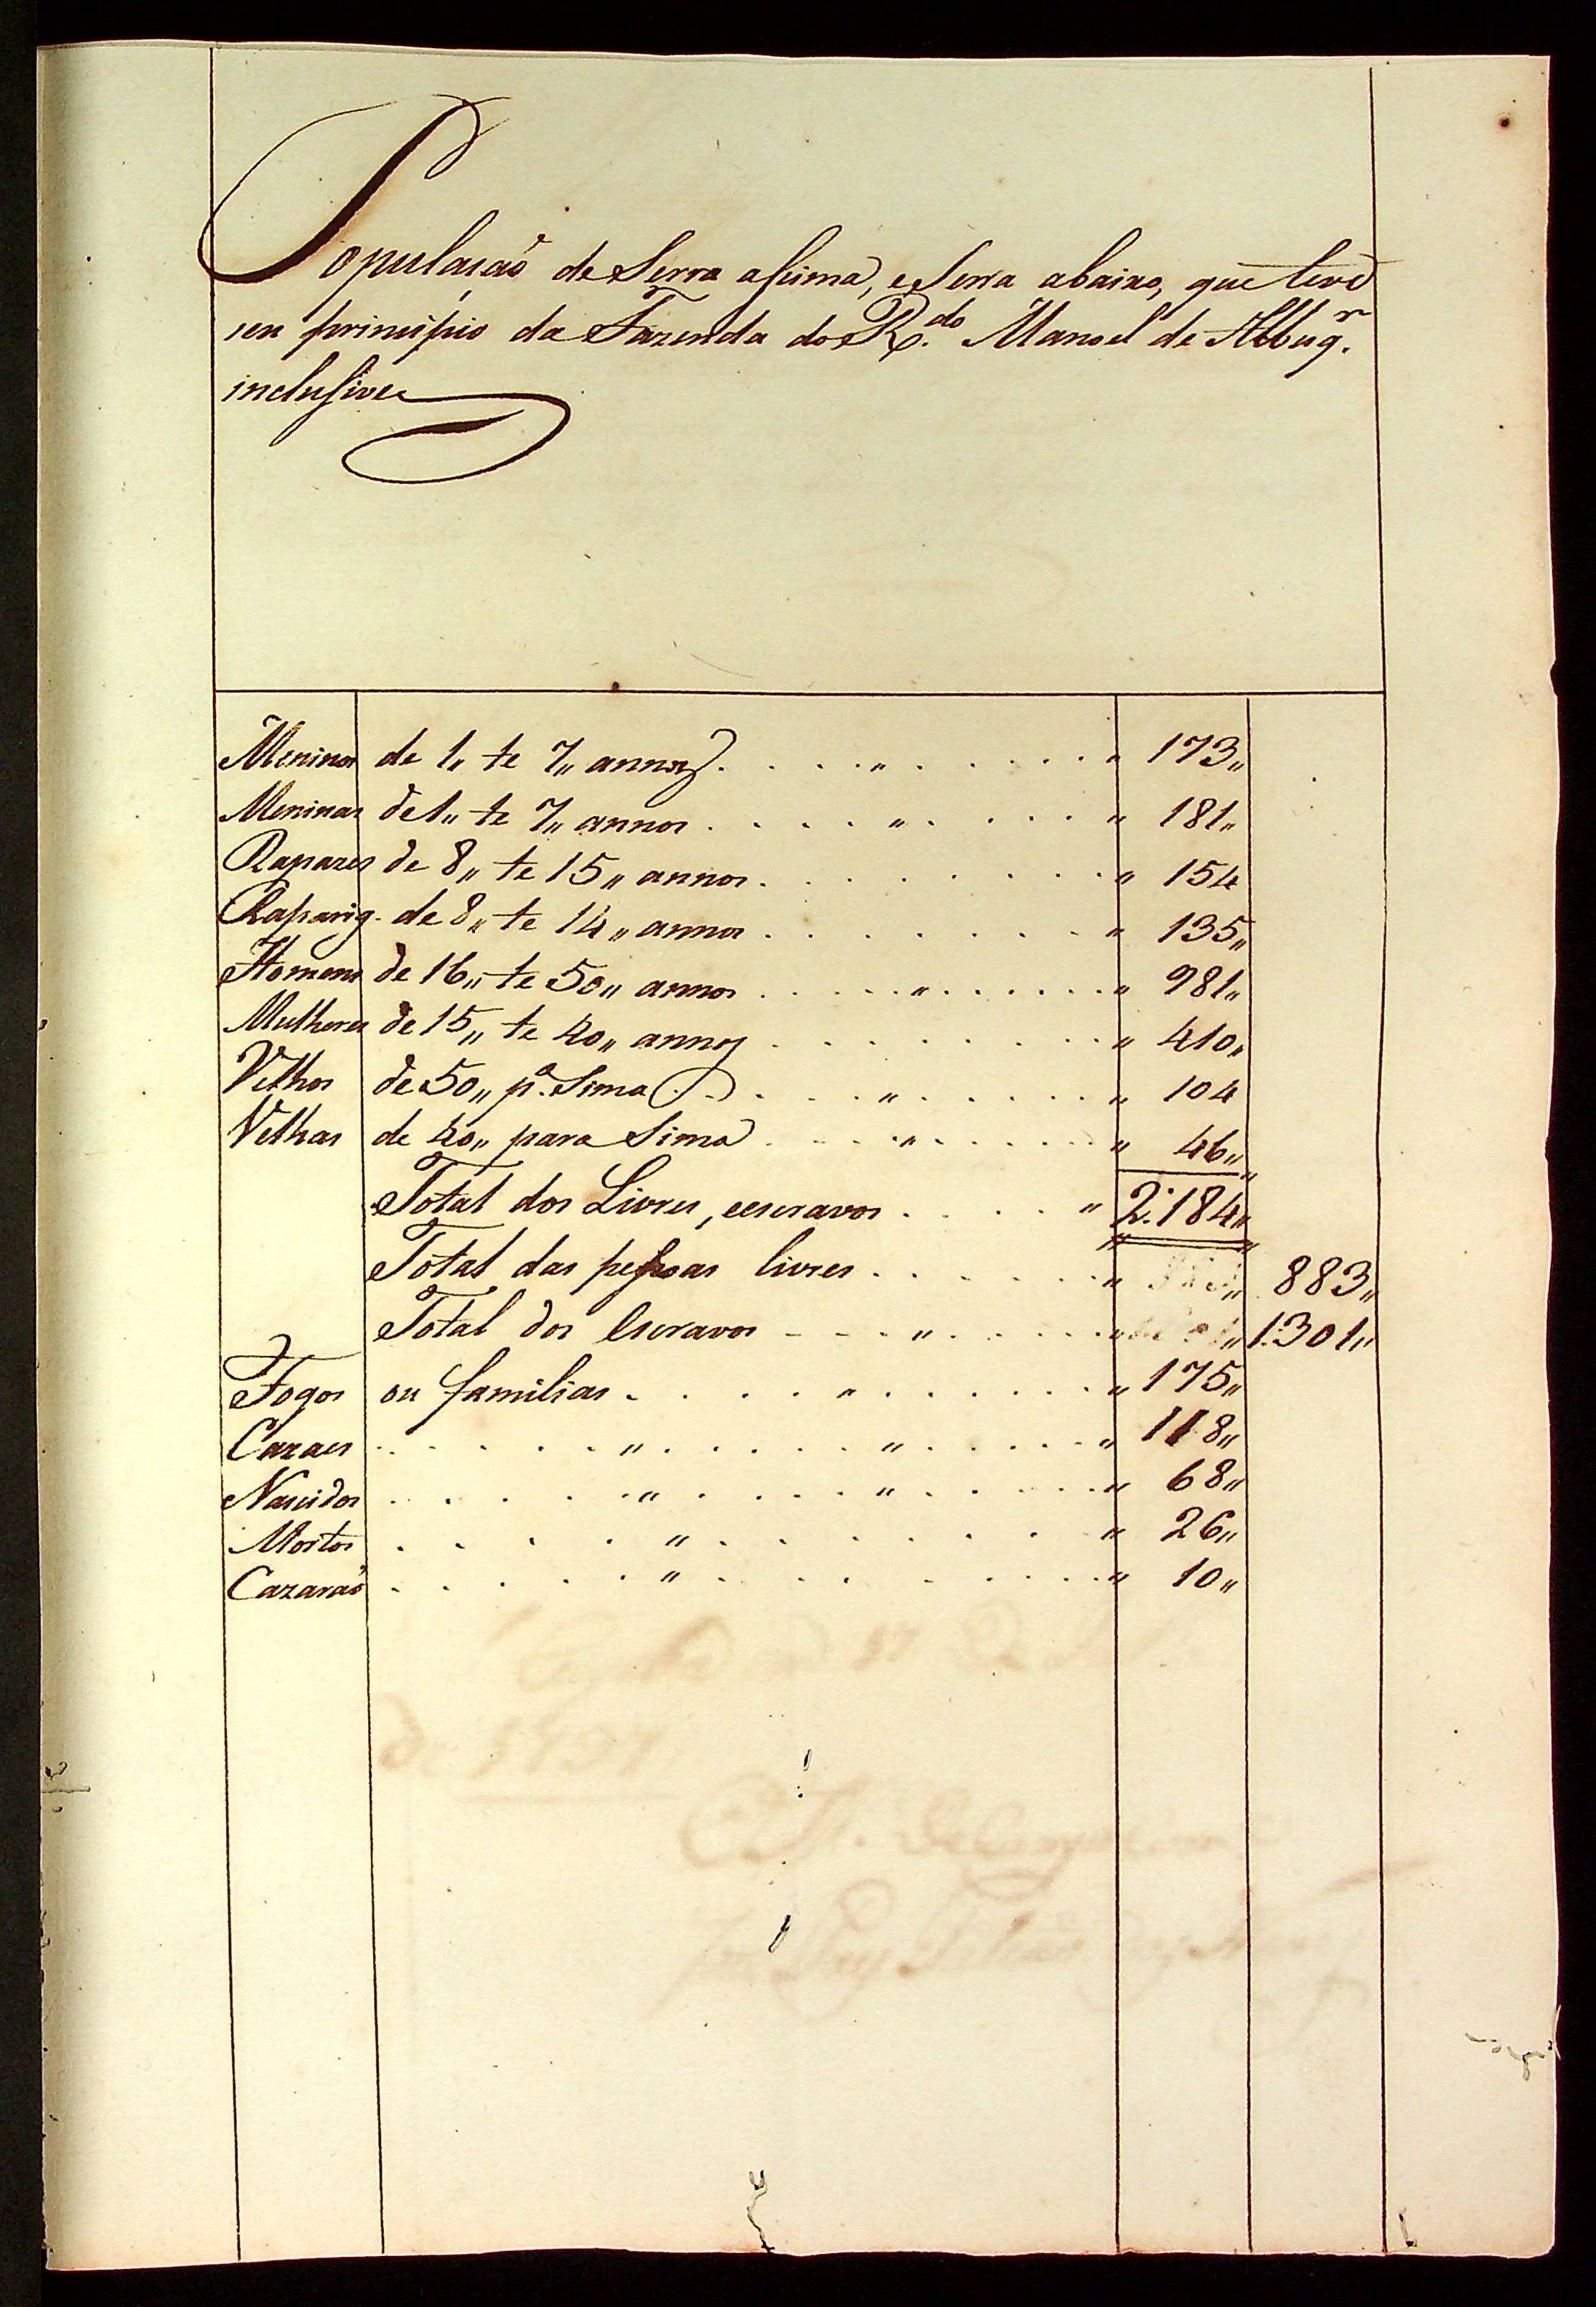 Populasaõ de Serra assima, e Serra abaixo, que teve
seu principio da Fazenda do R.do Manoel de Albuq.r
inclusive
Meninos de 1,, te 7,, annos . . . . ,, . . . . . ,, 173,,
Meninas de 1,, te 7,, annos . . . . ,, . . . . ,, 181,,
Rapazes de 8,, te 15,, annos . . . . . . . . ,, 154
Raparig. de 8,, te 14,, annos . . . . . . . . ,, 135,,
Homens de 16,, te 50,, annos . . . . ,, . . . . . ,, 981,,
Mulheres de 15,, te 40,, annos . . . . . . . . ,, 410,,
Velhos de 50,, p.a Sima . . . . ,, . . . . . ,, 104
Velhas de 40,, para Sima . . . . ,, . . . . . ,, 46,,
Total dos Livres, eescravos . . . . ,, 2:184,,
Total das pessoas livres . . . . . . ,, 883,,
Total dos Escravos - - - ,, . . . . . ,, 1:301,,
Fogos ou familias . . . . ,, . . . . . . ,, 175,,
Cazaes . . . . . ,, . . . . . ,, . . . . . ,, 118,,
Nascidos . . . . . ,, . . . . ,, . . . . . ,, 68,,
Mortos . . . . ,, . . . . . . . ,, 26,,
Cazaraõ . . . . . ,, . . . . . . . . ,, 10,,